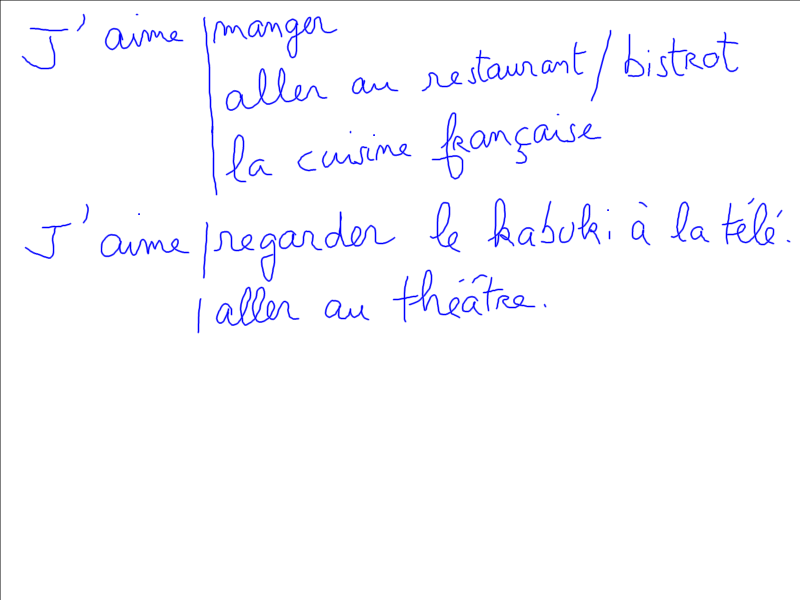 J'aime | manger
aller au restaurant / bistrot
la cuisine française
J'aime | regarder le kabuki à la télé.
| aller au théâtre.